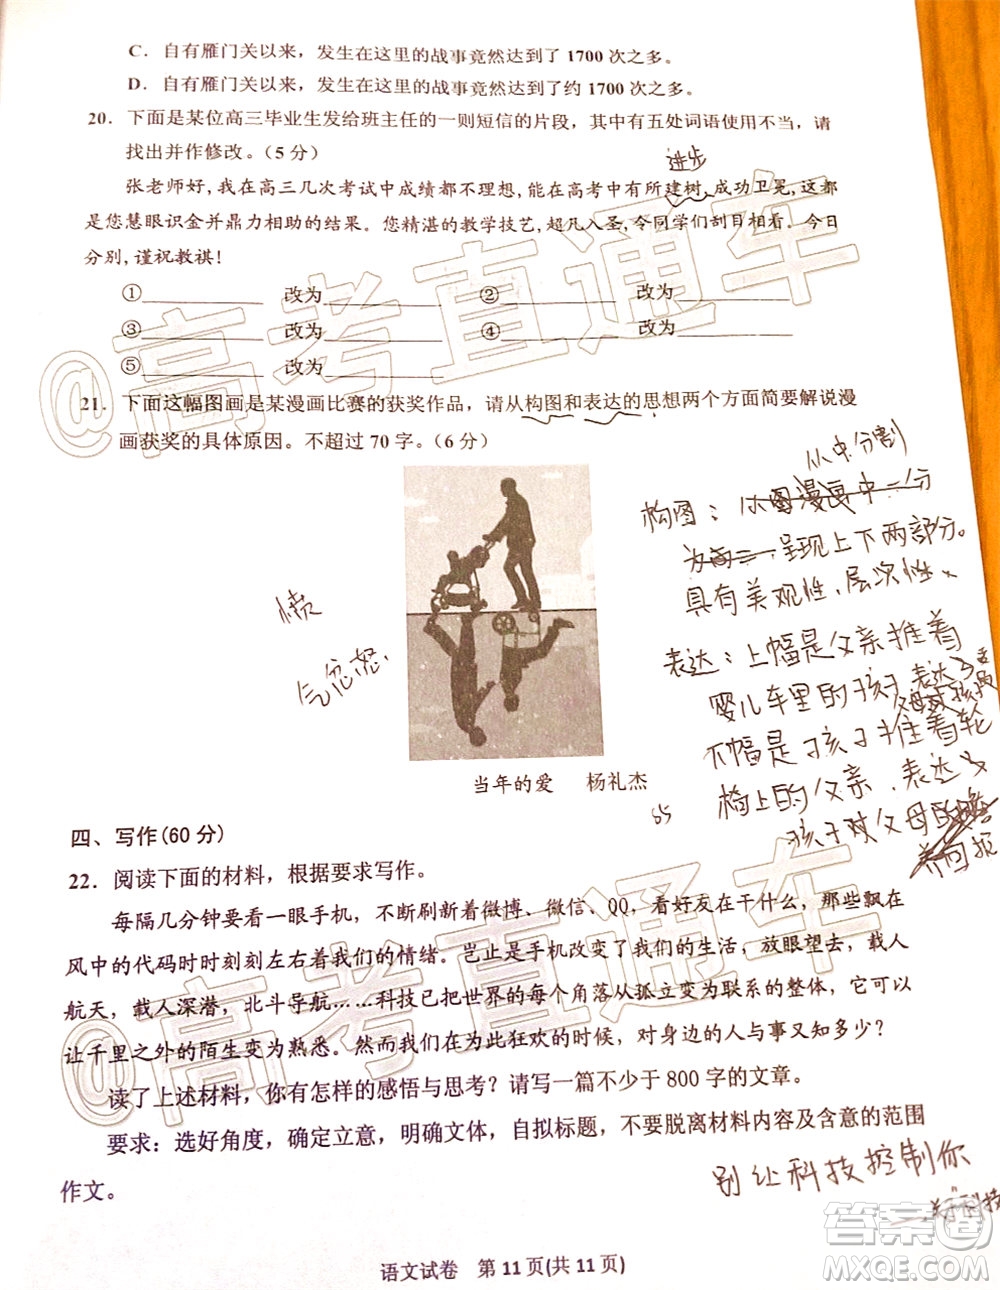 C．自有雁门关以来，发生在这里的战事竟然达到了 1700 次之多。
D．自有雁门关以来，发生在这里的战事竟然达到了约 1700 次之多。
20．下面是某位高三毕业生发给班主任的一则短信的片段，其中有五处词语使用不当，请
找出并作修改。（5 分）
进步
张老师好，我在高三几次考试中成绩都不理想，能在高考中有所建树，成功卫冕，这都
是您慧眼识金并鼎力相助的结果。您精湛的教学技艺，超凡入圣，令同学们刮目相看。今日
分别，谨祝教祺！
①__________ 改为__________ ②__________ 改为__________
③__________ 改为__________ ④__________ 改为__________
⑤__________ 改为__________
21．下面这幅图画是某漫画比赛的获奖作品，请从构图和表达的思想两个方面简要解说漫
画获奖的具体原因。不超过 70 字。（6 分）
从中分割
构图：从图漫画中一分
为两三呈现上下两部分。
具有美观性、层次性、
愤
气忿怒、
表达：上幅是父亲推着
婴儿车里的孩子表达了
下幅是孩子推着轮
椅上的父亲，表达了
孩子对父母的
养回报
55
当年的爱 杨礼杰
四、写作(60 分)
22．阅读下面的材料，根据要求写作。
每隔几分钟要看一眼手机，不断刷新着微博、微信、QQ，看好友在干什么，那些飘在
风中的代码时时刻刻左右着我们的情绪。岂止是手机改变了我们的生活，放眼望去，载人
航天，载人深潜，北斗导航……科技已把世界的每个角落从孤立变为联系的整体，它可
让千里之外的陌生变为熟悉。然而我们在为此狂欢的时候，对身边的人与事又知多少？
读了上述材料，你有怎样的感悟与思考？请写一篇不少于 800 字的文章。
要求：选好角度，确定立意，明确文体，自拟标题，不要脱离材料内容及含意的范围
作文。
别让科技控制你
关于科技
语文试卷 第 11 页(共 11 页)
@高考直通车
@高考直通车
答案圈
MXQE.COM